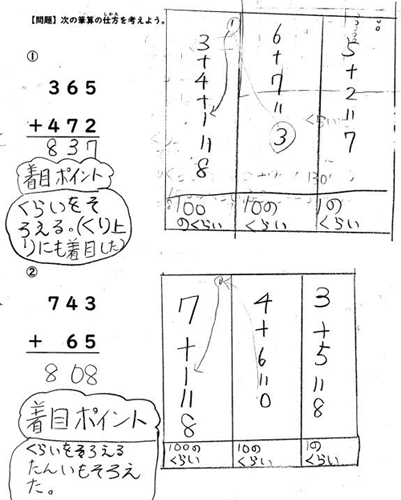 【問題】次の筆算の仕方を考えよう。
しかた
①
365
+472
837
着目ポイント
くらいをそ
ろえる。(くり上
りにも着目した)
1
3+4+1=8
100
のくらい
6+7=
3
10の
くらい
5+2=7
1の
くらい
②
743
+ 65
808
着目ポイント
くらいをそろえる
たんいもそろえ
た。
7+1=8
100の
くらい
4+6=0
10の
くらい
3+5=8
1の
くらい